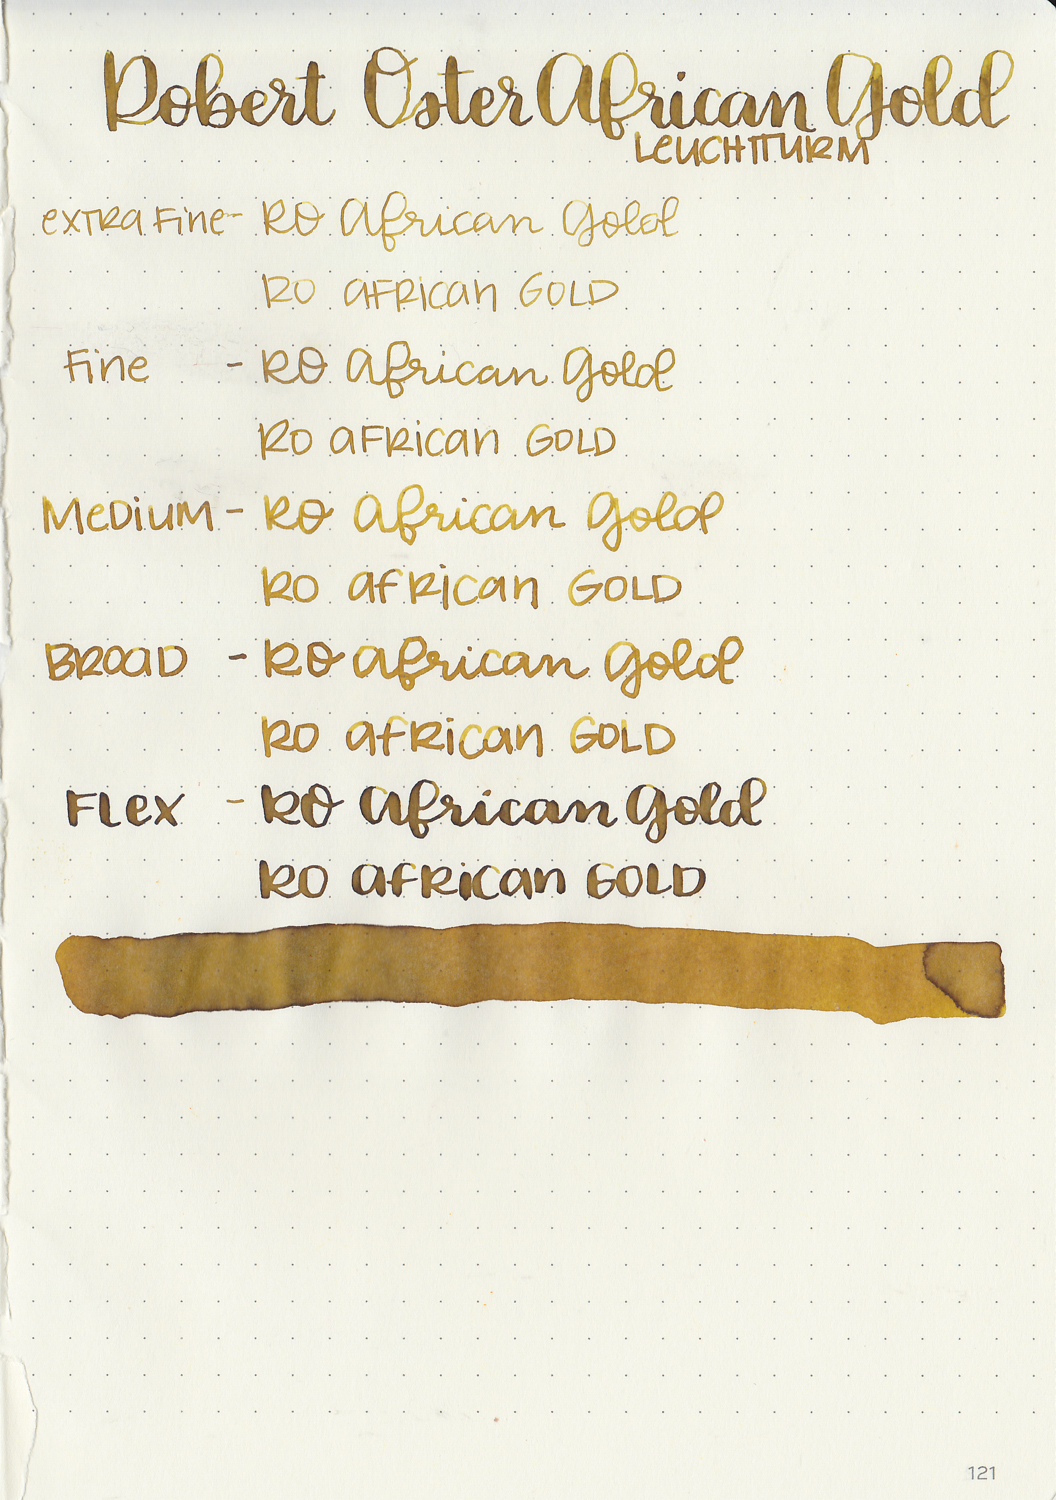 Robert Oster African Gold
LEUCHTTURM
extra Fine - RO African Gold
RO AFRICAN GOLD
Fine - RO African Gold
RO AFRICAN GOLD
MEDIUM - RO African Gold
RO AFRICAN GOLD
BROAD - RO African Gold
RO AFRICAN GOLD
FLEX - RO African Gold
RO AFRICAN GOLD
121